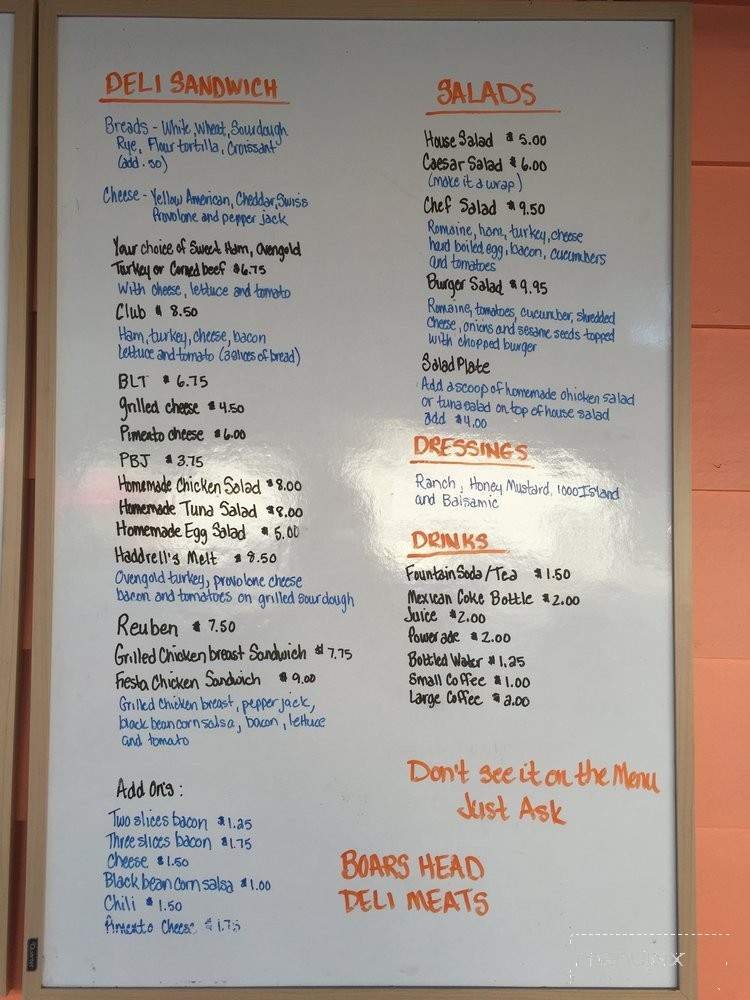 DELI SANDWICH
Breads - White, Wheat, Sourdough
Rye, Flour tortilla, Croissant
(add .50)
Cheese - Yellow American, Cheddar, Swiss
Provolone and pepper jack
Your choice of Sweet Ham, Ovengold
Turkey or Corned beef $6.75
With cheese, lettuce and tomato
Club $8.50
Ham, turkey, cheese, bacon
lettuce and tomato (3 slices of bread)
BLT $6.75
grilled cheese $4.50
Pimento cheese $6.00
PBJ $3.75
Homemade Chicken Salad $8.00
Homemade Tuna Salad $8.00
Homemade Egg Salad $5.00
Haddrell's Melt $8.50
Ovengold turkey, provolone cheese
bacon and tomatoes on grilled sourdough
Reuben $7.50
Grilled Chicken breast Sandwich $7.75
Fiesta Chicken Sandwich $9.00
Grilled chicken breast, pepper jack,
black bean corn salsa, bacon, lettuce
and tomato
Add On's:
Two slices bacon $1.25
Three slices bacon $1.75
Cheese $1.50
Black bean corn salsa $1.00
Chili $1.50
Pimento Cheese $1.75
SALADS
House Salad $5.00
Caesar Salad $6.00
(make it a wrap)
Chef Salad $9.50
Romaine, ham, turkey, cheese
hard boiled egg, bacon, cucumbers
and tomatoes
Burger Salad $9.95
Romaine, tomatoes, cucumber, shredded
cheese, onions and sesame seeds topped
with chopped burger
Salad Plate
Add a scoop of homemade chicken salad
or tuna salad on top of house salad
add $4.00
DRESSINGS
Ranch, Honey Mustard, 1000 Island
and Balsamic
DRINKS
Fountain Soda/Tea $1.50
Mexican Coke Bottle $2.00
Juice $2.00
Powerade $2.00
Bottled Water $1.25
Small Coffee $1.00
Large Coffee $2.00
Don't see it on the Menu
Just Ask
BOARS HEAD
DELI MEATS